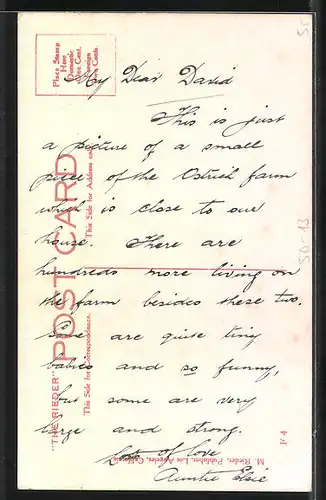 My Dear David
This is just
a picture of a small
piece of the Ostrich farm
which is close to our
house. There are
hundreds more living on
the farm besides these two.
Some are quite tiny
babies and so funny,
but some are very
large and strong.
Lots of love
Auntie Elsie
Place Stamp
Here
Domestic
One Cent.
Foreign
Two Cents.
POST CARD
This Side for Address
"THE RIEDER"
This Side for Correspondence.
M. Rieder, Publisher, Los Angeles, California
F 4